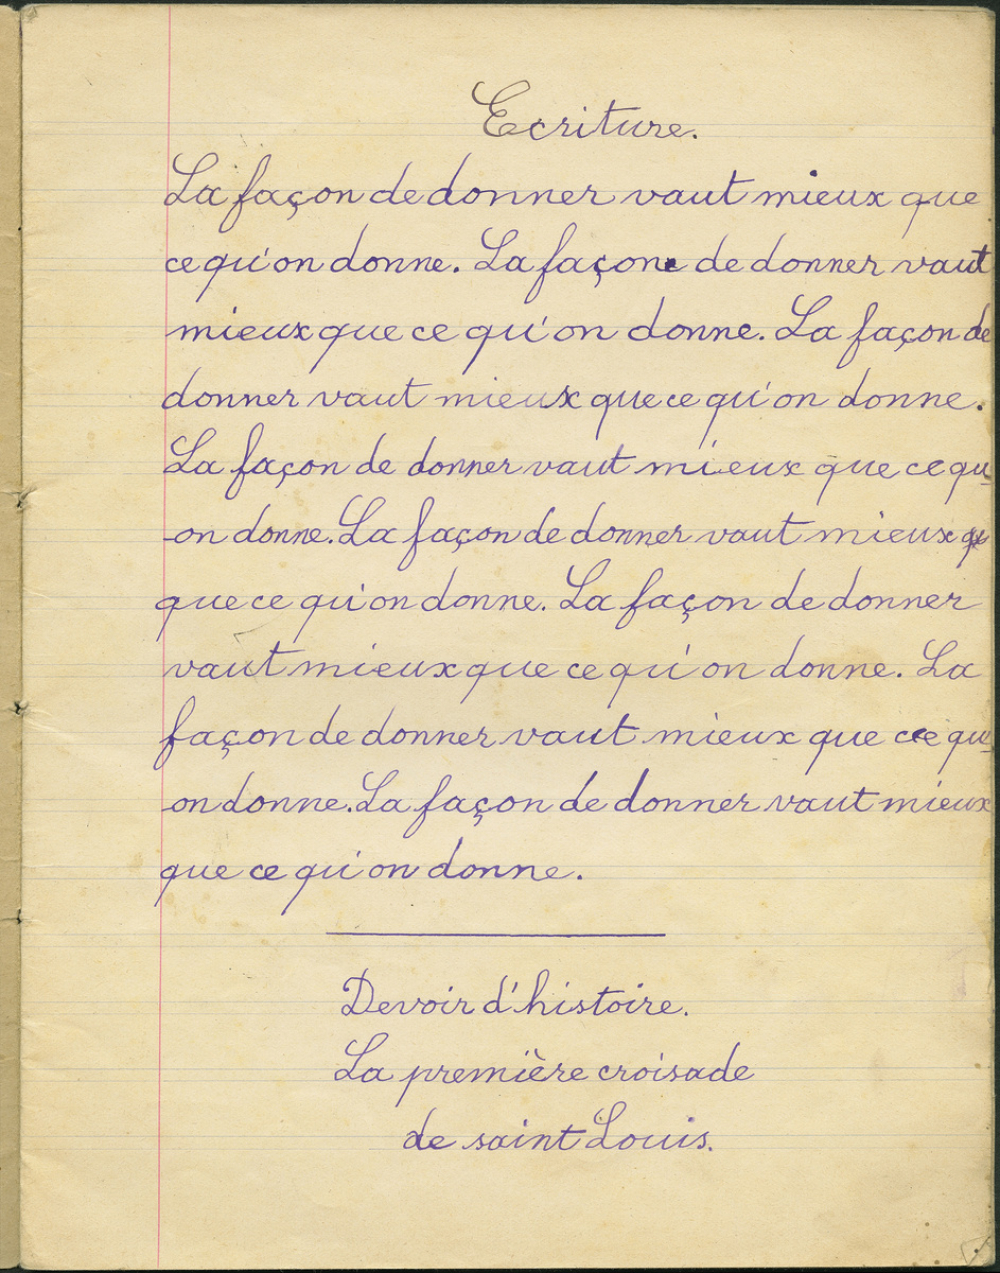 Ecriture.
La façon de donner vaut mieux que
ce qu'on donne. La façon de donner vaut
mieux que ce qu'on donne. La façon de
donner vaut mieux que ce qu'on donne.
La façon de donner vaut mieux que ce qu
-on donne. La façon de donner vaut mieux
que ce qu'on donne. La façon de donner
vaut mieux que ce qu'on donne. La
façon de donner vaut mieux que ce qu
on donne. La façon de donner vaut mieux
que ce qu'on donne.
Devoir d'histoire.
La première croisade
de saint Louis.